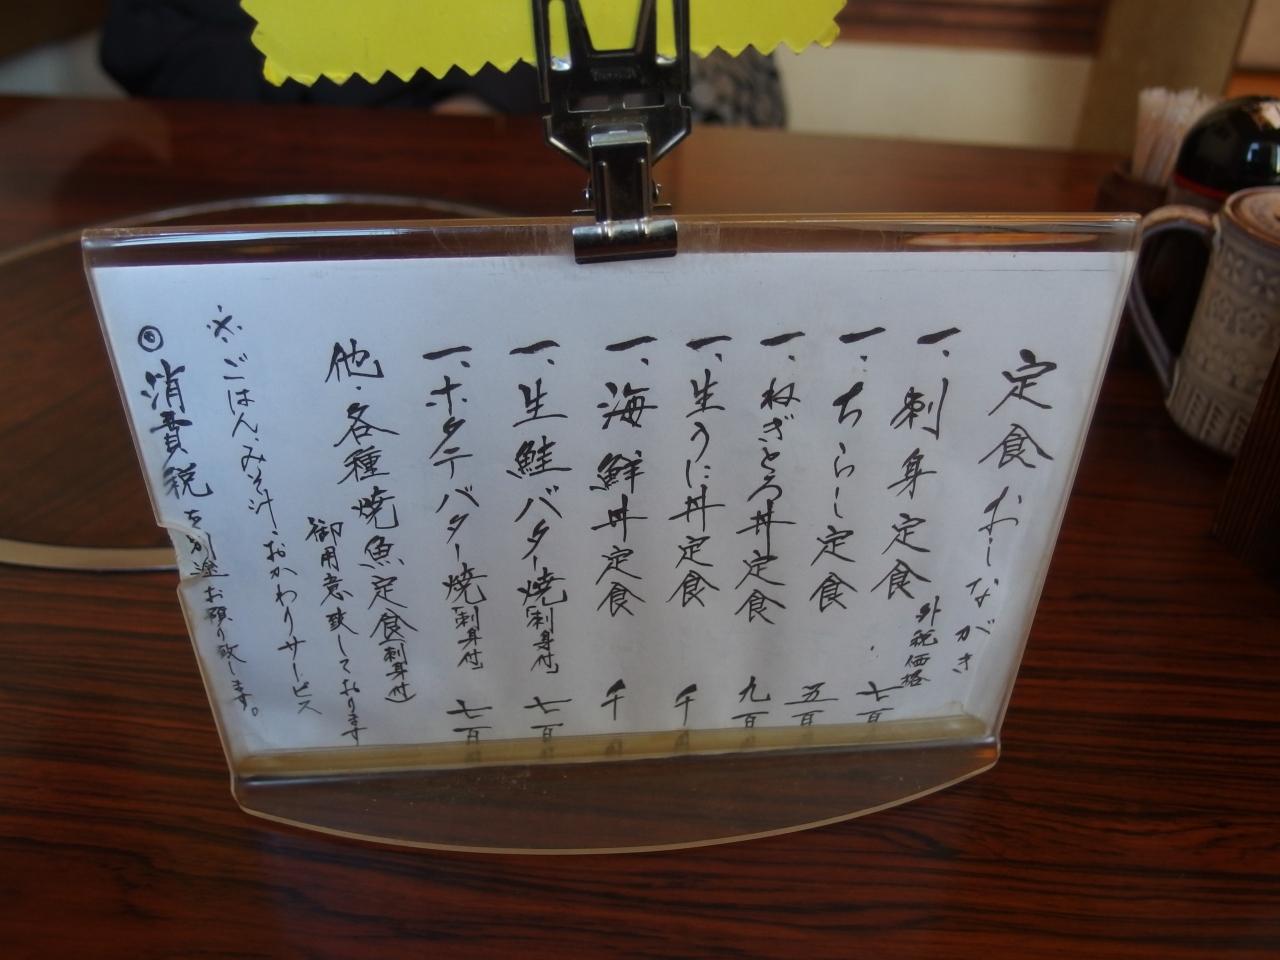 定食おしながき
外税価格
一、刺身定食 七百
一、ちらし定食 五百
一、ねぎとろ丼定食 九百
一、生うに丼定食 千
一、海鮮丼定食 千
一、生鮭バター焼(刺身付) 七百
一、ホタテバター焼(刺身付) 七百
他、各種焼魚定食(刺身付)
御用意致しております
※ごはん、みそ汁、おかわりサービス
◎消費税を別途お預り致します。